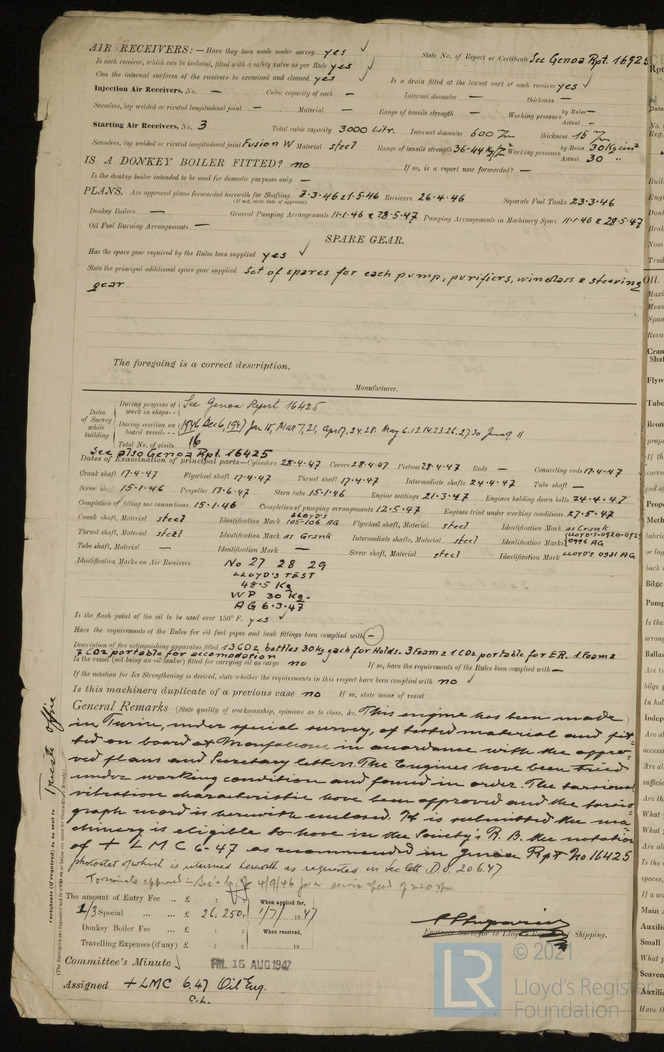 AIR RECEIVERS:— Have they been made under survey yes ✓ State No. of Report or Certificate See Genoa Rpt. 16425
Is each receiver, which can be isolated, fitted with a safety valve as per Rule yes ✓
Can the internal surfaces of the receivers be examined and cleaned yes ✓ Is a drain fitted at the lowest part of each receiver yes ✓
Injection Air Receivers, No. — Cubic capacity of each — Internal diameter — thickness —
Seamless, lap welded or riveted longitudinal joint — Material — Range of tensile strength — Working pressure by Rules — Actual —
Starting Air Receivers, No. 3 Total cubic capacity 3000 Litr. Internal diameter 600 thickness 15
Seamless, lap welded or riveted longitudinal joint Fusion W Material steel Range of tensile strength 36-44 Kg Working pressure by Rules 30 Kg Actual 30 "
IS A DONKEY BOILER FITTED? no If so, is a report now forwarded? —
Is the donkey boiler intended to be used for domestic purposes only —
PLANS. Are approved plans forwarded herewith for Shafting 7.3.46 & 1.5.46 Receivers 26.4.46 Separate Fuel Tanks 23.3.46
(If not, state date of approval)
Donkey Boilers — General Pumping Arrangements 11.1.46 & 28.5.47 Pumping Arrangements in Machinery Space 11.1.46 & 28.5.47
Oil Fuel Burning Arrangements —
SPARE GEAR.
Has the spare gear required by the Rules been supplied yes ✓
State the principal additional spare gear supplied Set of spares for each pump, purifiers, windlass & steering
gear
The foregoing is a correct description,
Manufacturer.
Dates of Survey while building
During progress of work in shops-- See Genoa Report 16425
During erection on board vessel--- 1946 Dec 6, 1947 Jan 15, Mar 7, 21, Apr 17, 24, 28, May 6, 12, 14, 23, 26, 27, 30 June 9, 11
Total No. of visits 16
See also Genoa Rpt. 16425
Dates of Examination of principal parts—Cylinders 28.4.47 Covers 28.4.47 Pistons 28.4.47 Rods — Connecting rods 17.4.47
Crank shaft 17.4.47 Flywheel shaft 17.4.47 Thrust shaft 17.4.47 Intermediate shafts 24.4.47 Tube shaft —
Screw shaft 15.1.46 Propeller 17.6.47 Stern tube 15.1.46 Engine seatings 21.3.47 Engines holding down bolts 24.4.47
Completion of fitting sea connections 15.1.46 Completion of pumping arrangements 12.5.47 Engines tried under working conditions 27.5.47
Crank shaft, Material steel Identification Mark LLOYD'S 105-106 AG Flywheel shaft, Material steel Identification Mark as Crank
Thrust shaft, Material steel Identification Mark as Crank Intermediate shafts, Material steel Identification Marks LLOYD'S 0920-0925 0996 AG
Tube shaft, Material — Identification Mark — Screw shaft, Material steel Identification Mark LLOYD'S 0921 AG
Identification Marks on Air Receivers No 27 28 29
LLOYD'S TEST
48.5 Kg
WP 30 Kg.
AG 6.3.47
Is the flash point of the oil to be used over 150° F. yes ✓
Have the requirements of the Rules for oil fuel pipes and tank fittings been complied with —
Description of fire extinguishing apparatus fitted 13 CO2 bottles 30 kg each for Holds. 3 Foam & 1 CO2 portable for ER. 1 Foam &
7 CO2 portable for accomodation
Is the vessel (not being an oil tanker) fitted for carrying oil as cargo no If so, have the requirements of the Rules been complied with —
If the notation for Ice Strengthening is desired, state whether the requirements in this respect have been complied with no ✓
Is this machinery duplicate of a previous case no If so, state name of vessel
General Remarks (State quality of workmanship, opinions as to class, &c. This engine has been made
in Turin, under special survey, of tested material and fit-
ted on board at Monfalcone in accordance with the appro-
ved plans and Secretary letters. The Engines have been tried
under working condition and found in order. The torsional
vibration characteristic have been approved and the torsio-
graph record is herewith enclosed. It is submitted the ma-
chinery is eligible to have in the Society's R. B. the notation
of + L M C 6-47 as recommended in Genoa Rpt No 16425
photostat of which is returned herewith as requested in Sec lett D.O. 20.6.47
Torsionals approved in Sec's 4/9/46 for a service speed of 220
The amount of Entry Fee .. £ : : When applied for,
1/3 Special ... ... £ 26.250: 1/7/1947
Donkey Boiler Fee ... £ : : When received,
Travelling Expenses (if any) £ : : 19
Engineer Surveyor to Lloyd's Register of Shipping.
Committee's Minute FRI. 15 AUG 1947
Assigned + LMC 6.47 Oil Eng.
C.L.
Certificate (if required) to be sent to Trieste office
(The Surveyors are requested not to write on or below the space for Committee's Minute.)
© 2021
LR
Lloyd's Register
Foundation